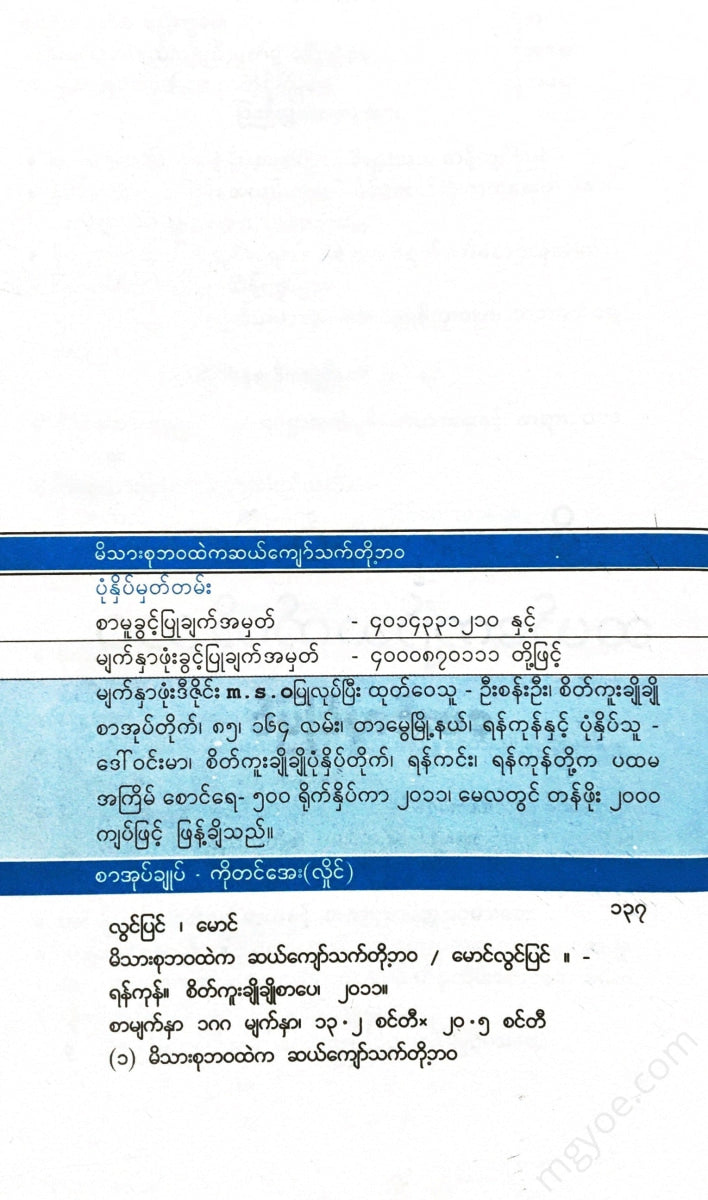 မိသားစုဘဝထဲကဆယ်ကျော်သက်တို့ဘဝ
ပုံနှိပ်မှတ်တမ်း
စာမူခွင့်ပြုချက်အမှတ် - ၄၀၁၄၃၃၁၂၁၀ နှင့်
မျက်နှာဖုံးခွင့်ပြုချက်အမှတ် - ၄၀၀၀၈၇၀၁၁၁ တို့ဖြင့်
မျက်နှာဖုံးဒီဇိုင်း m.s.oပြုလုပ်ပြီး ထုတ်ဝေသူ - ဦးစန်းဦး၊ စိတ်ကူးချိုချို
စာအုပ်တိုက်၊ ၈၅၊ ၁၆၄ လမ်း၊ တာမွေမြို့နယ်၊ ရန်ကုန်နှင့် ပုံနှိပ်သူ -
ဒေါ်ဝင်းမာ၊ စိတ်ကူးချိုချိုပုံနှိပ်တိုက်၊ ရန်ကင်း၊ ရန်ကုန်တို့က ပထမ
အကြိမ် စောင်ရေ- ၅၀၀ ရိုက်နှိပ်ကာ ၂၀၁၁၊ မေလတွင် တန်ဖိုး ၂၀၀၀
ကျပ်ဖြင့် ဖြန့်ချိသည်။
စာအုပ်ချုပ် - ကိုတင်အေး(လှိုင်)
၁၃၇
လွင်ပြင် ၊ မောင်
မိသားစုဘဝထဲက ဆယ်ကျော်သက်တို့ဘဝ / မောင်လွင်ပြင် ။ -
ရန်ကုန်။ စိတ်ကူးချိုချိုစာပေ၊ ၂၀၁၁။
စာမျက်နှာ ၁၈၈ မျက်နှာ၊ ၁၃.၂ စင်တီ× ၂၀.၅ စင်တီ
(၁) မိသားစုဘဝထဲက ဆယ်ကျော်သက်တို့ဘဝ
mgyoe.com